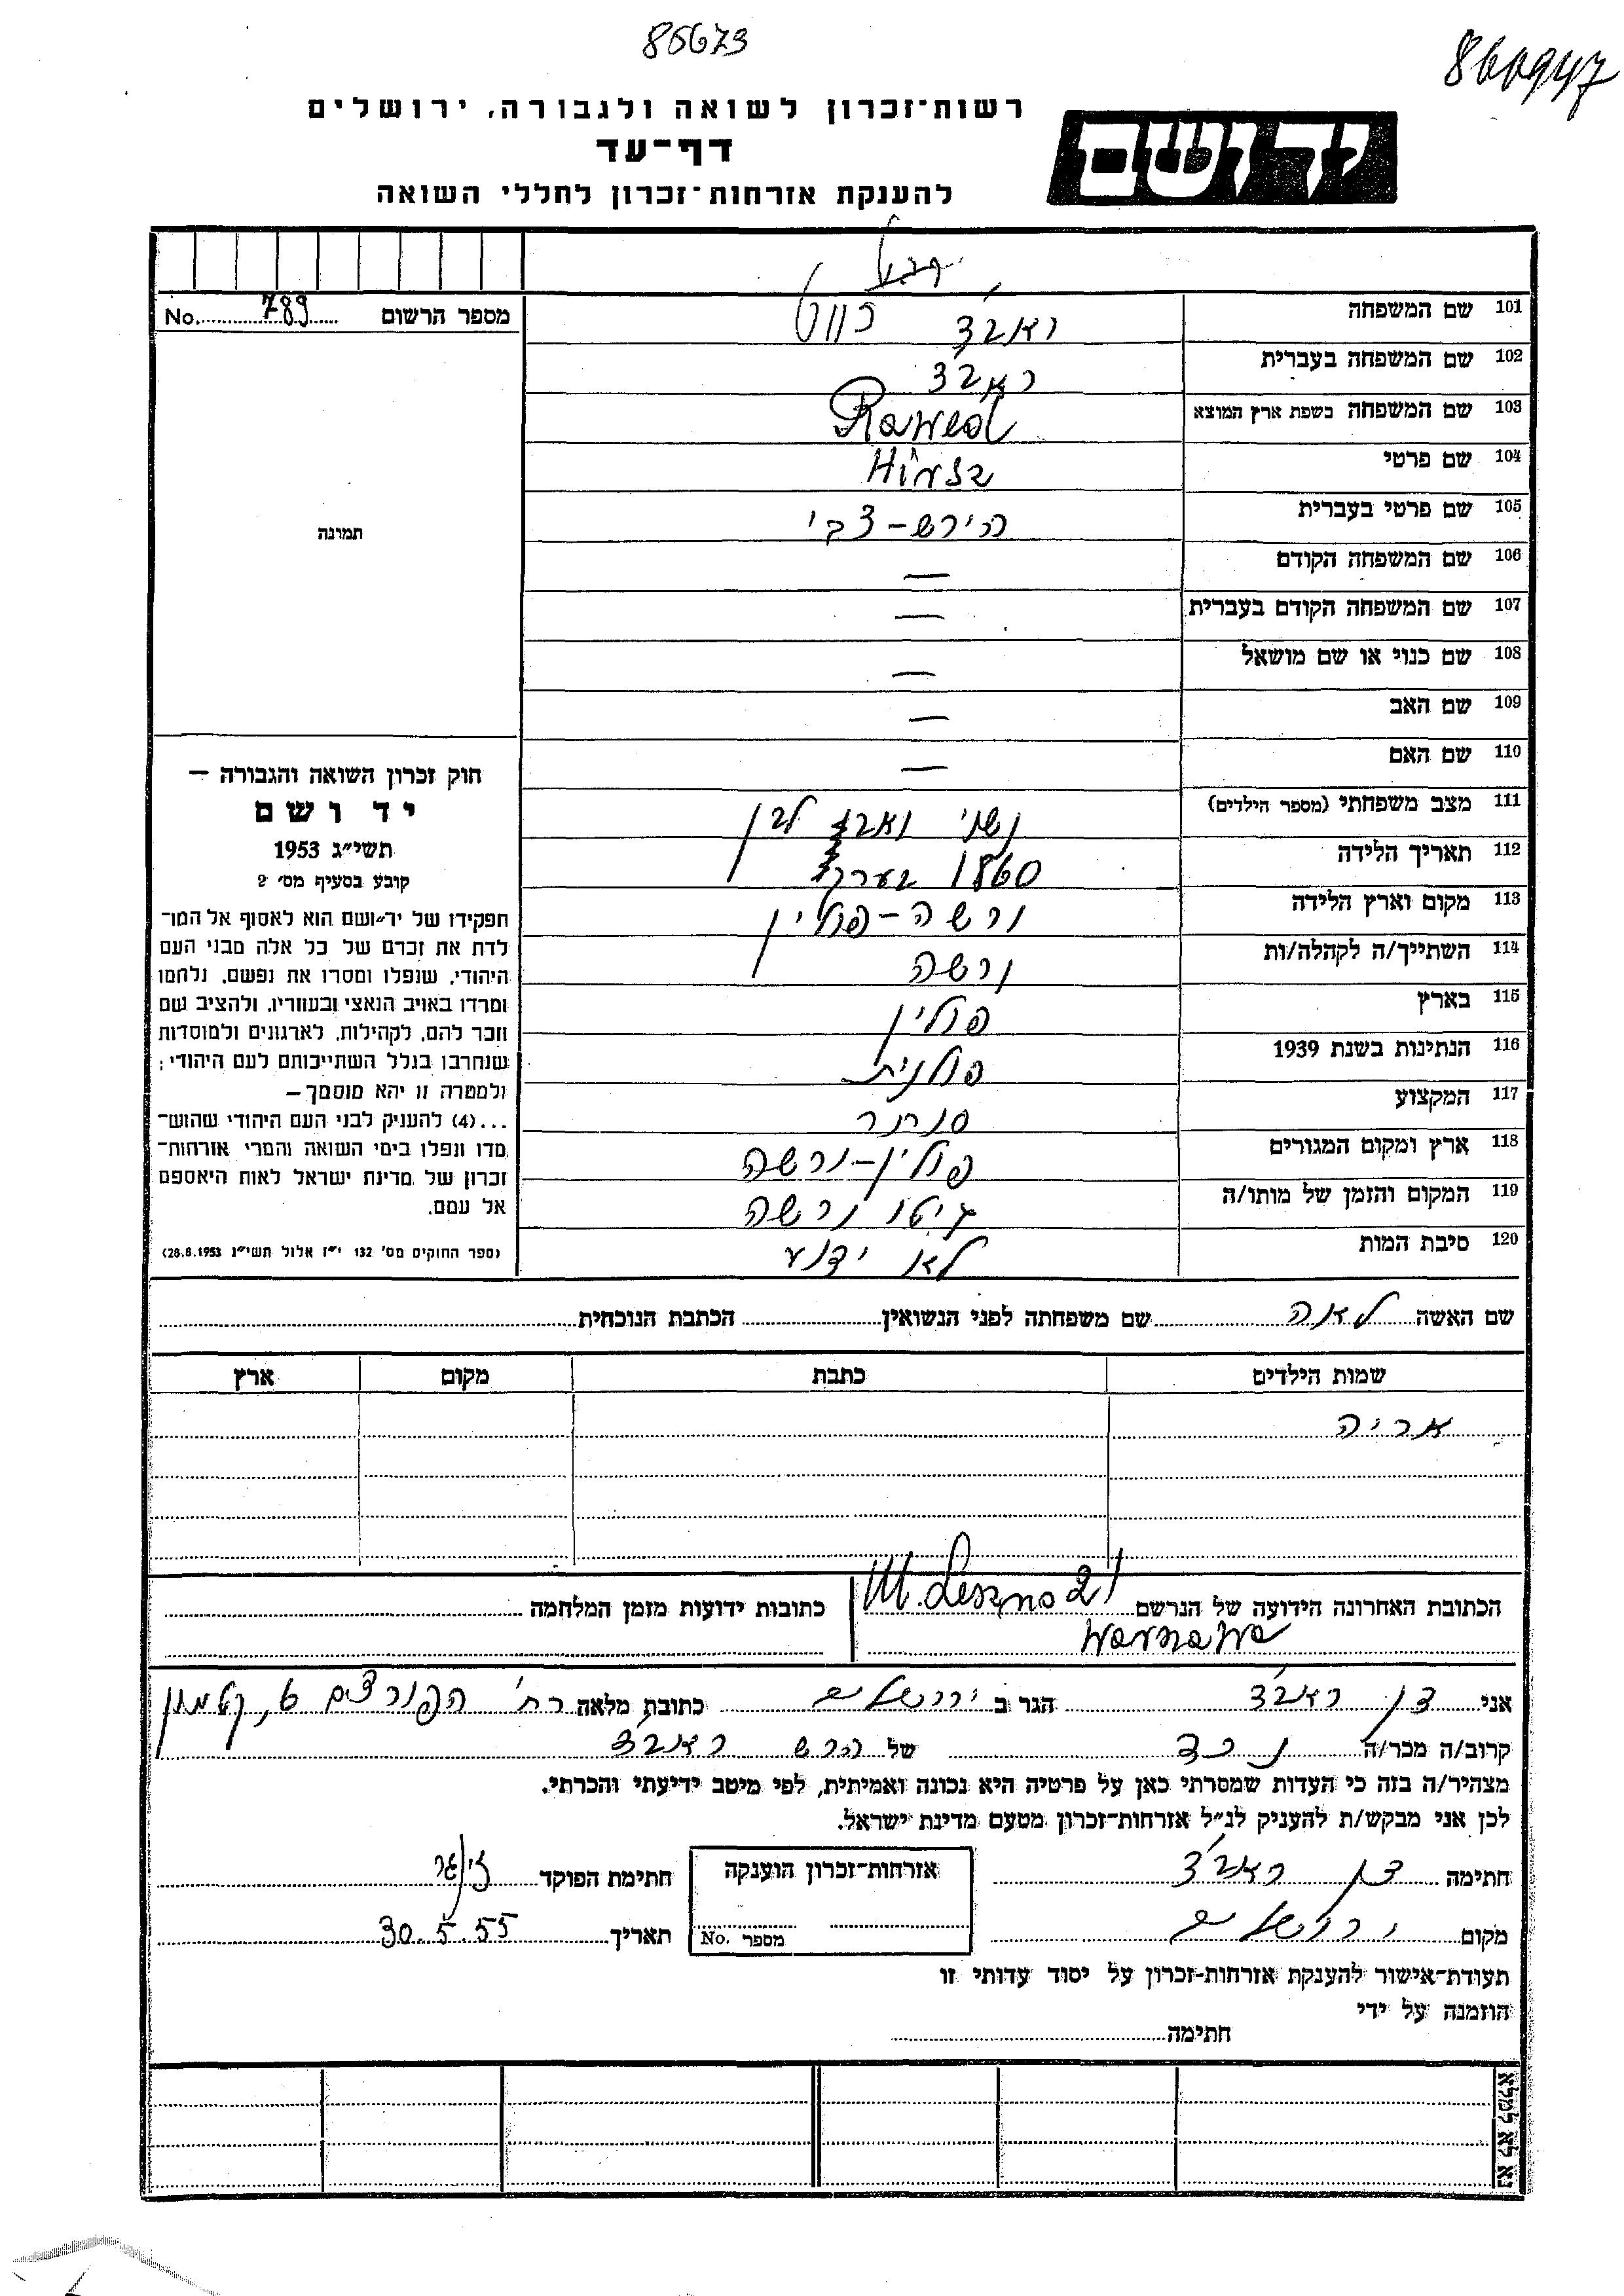 86673
860947
רשות־זכרון לשואה ולגבורה, ירושלים
דף־עד
להענקת אזרחות־זכרון לחללי השואה
יד ושם
מספר הרשום No. 789
תמונה
101 שם המשפחה ראב״ד
102 שם המשפחה בעברית ראב״ד
103 שם המשפחה בשפת ארץ המוצא Rawed
104 שם פרטי Hirsz
105 שם פרטי בעברית הירש-צבי
106 שם המשפחה הקודם —
107 שם המשפחה הקודם בעברית —
108 שם כנוי או שם מושאל —
109 שם האב —
110 שם האם —
111 מצב משפחתי (מספר הילדים) נשוי ואב לבן
112 תאריך הלידה 1860 בערך
113 מקום וארץ הלידה ורשה-פולין
114 השתייך/ה לקהלה/ות ורשה
115 בארץ פולין
116 הנתינות בשנת 1939 פולנית
117 המקצוע סוחר
118 ארץ ומקום המגורים פולין-ורשה
119 המקום והזמן של מותו/ה גיטו ורשה
120 סיבת המות לא ידוע
חוק זכרון השואה והגבורה —
יד ושם
תשי״ג 1953
קובע בסעיף מס׳ 2
תפקידו של יד־ושם הוא לאסוף אל המו־
לדת את זכרם של כל אלה מבני העם
היהודי, שנפלו ומסרו את נפשם, נלחמו
ומרדו באויב הנאצי ובעוזריו, ולהציב שם
וזכר להם, לקהילות, לארגונים ולמוסדות
שנחרבו בגלל השתייכותם לעם היהודי;
ולמטרה זו יהא מוסמך—
...(4) להעניק לבני העם היהודי שהוש־
מדו ונפלו בימי השואה והמרי אזרחות־
זכרון של מדינת ישראל לאות היאספם
אל עמם.
(ספר החוקים מס׳ 132 י״ז אלול תשי״ג 28.8.1953)
שם האשה לאה שם משפחתה לפני הנשואין הכתבת הנוכחית
שמות הילדים כתבת מקום ארץ
אריה
הכתובת האחרונה הידועה של הנרשם Ul. Leszno 21
Warszawa
כתובות ידועות מזמן המלחמה
אני דן ראב״ד הגר ב ירושלים כתובת מלאה רח׳ הפורצים 6, קטמון
קרוב/ה מכר/ה נכד של הרש ראב״ד
מצהיר/ה בזה כי העדות שמסרתי כאן על פרטיה היא נכונה ואמיתית, לפי מיטב ידיעתי והכרתי.
לכן אני מבקש/ת להעניק לנ״ל אזרחות־זכרון מטעם מדינת ישראל.
חתימה דן ראב״ד
אזרחות־זכרון הוענקה
חתימת הפוקד
מקום ירושלים
מספר No.
תאריך 30.5.55
תעודת־אישור להענקת אזרחות־זכרון על יסוד עדותי זו
הוזמנה על ידי
חתימה
נא לא למלא